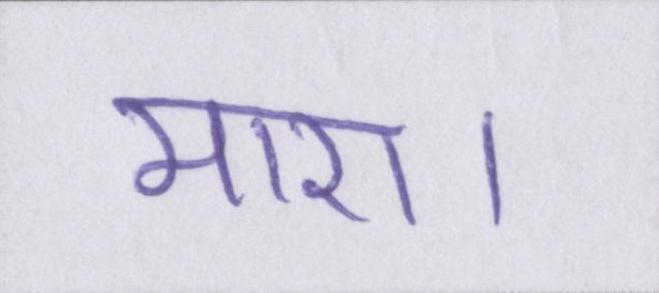 मारा।